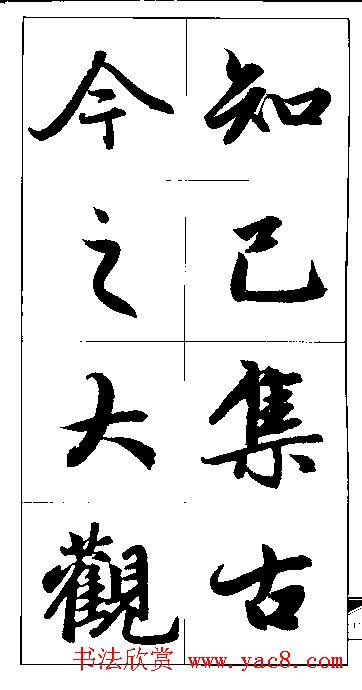 知己集古
今之大觀
书法欣赏 www.yac8.com